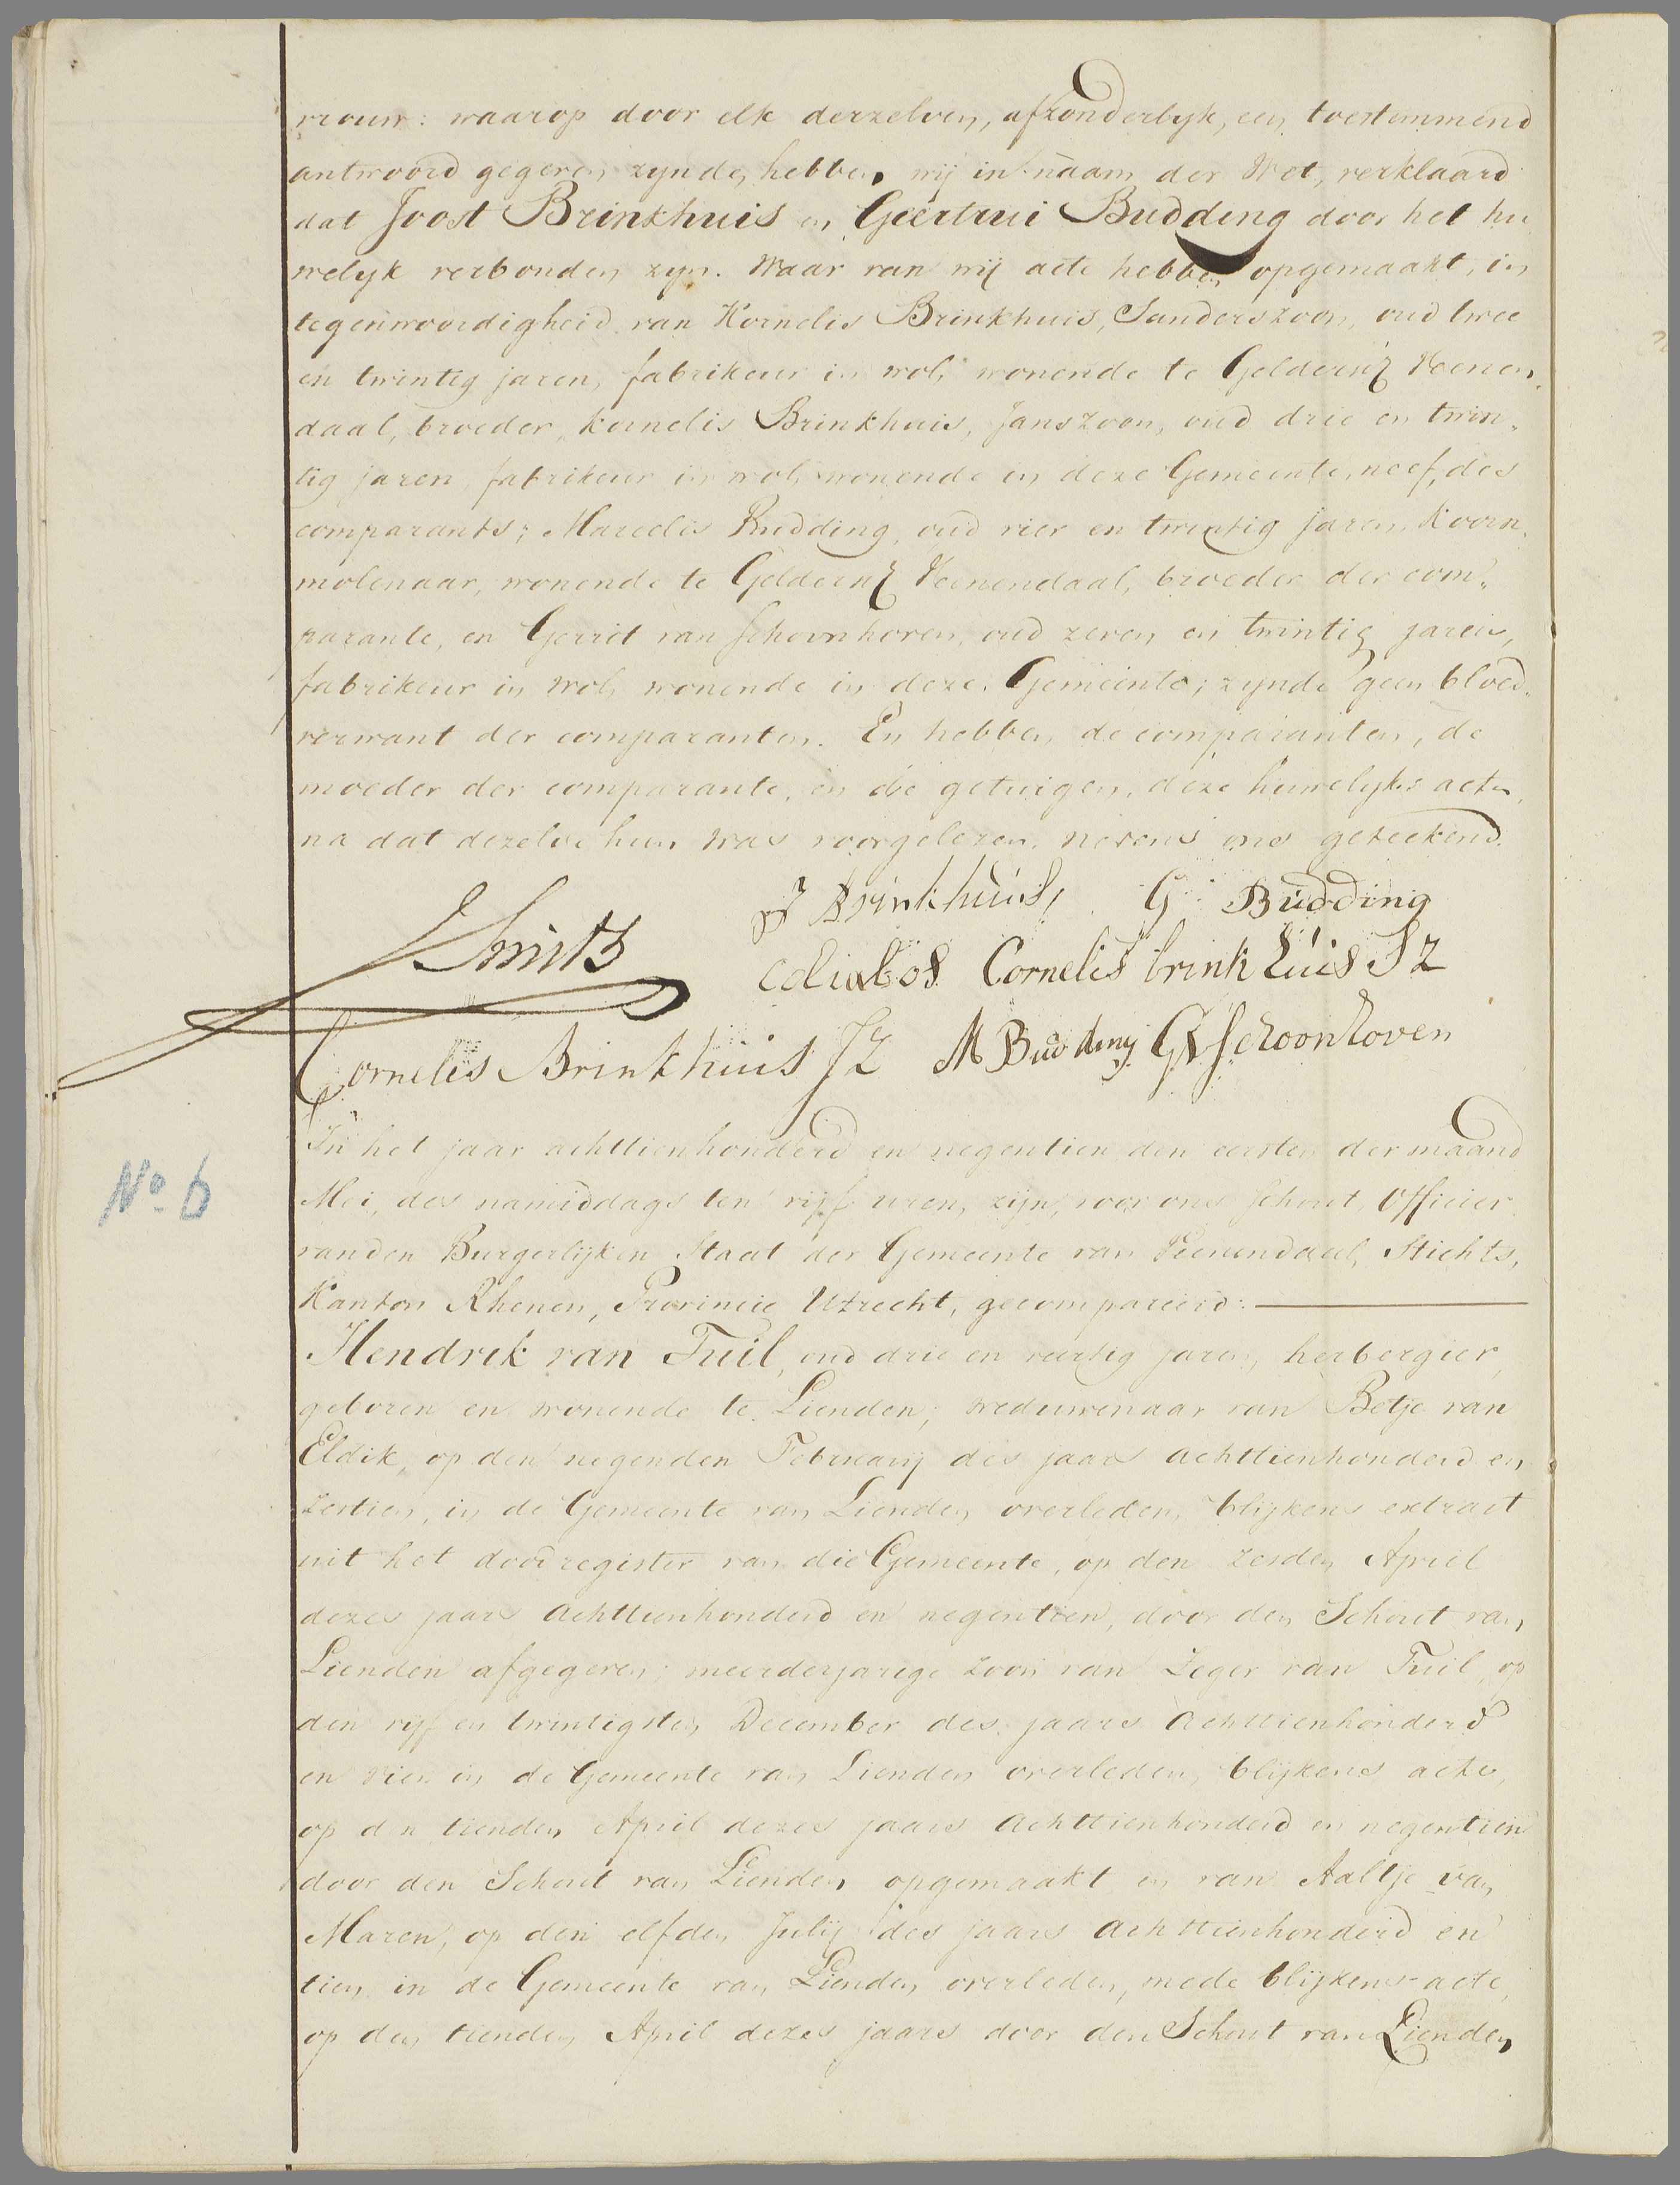 vrouw: waarop door elk derzelven, afzonderlyk, een toestemmend
antwoord gegeven zynde, hebben wij in naam der Wet, verklaard
dat Joost Brinkhuis en Geertrui Budding door het hu
welyk verbonden zyn. Waar van wij acte hebben opgemaakt, in
tegenwoordigheid van Kornelis Brinkhuis, Sanderszoon, oud twee
en twintig jaren, fabrikeur in wol, wonende te Geldersch Veenen„
daal, broeder, kornelis Brinkhuis, Janszoon, oud drie en twin„
tig jaren, fabrikeur in wol, wonende in deze Gemeente, neef, des
comparants; Marcelis Budding, oud vier en twentig jaren, Koorn„
molenaar, wonende te Geldersch Veenendaal, broeder der com„
parante, en Gerrit van Schoonhoven, oud zeven en twintig jaren,
fabrikeur in wol, wonende in deze Gemeente; zynde geen bloed„
verwant der comparanten. En hebben de comparanten, de
moeder der comparante, en de getuigen, deze huwelyks acte,
na dat dezelve hun was voorgelezen, nevens ons geteekend.
Smits
J Brinkhuis, G Budding
Cornelis brinkhuis SZ
Cornelis Brinkhuis JZ M Budding GV Schoonhoven
No 6
In het jaar achttienhonderd en negentien den eersten der maand
Mei, des namiddags ten vijf uren, zijn, voor ons Schout, Officier
van den Burgerlijken Staat der Gemeente van Veenendaal, Stichts,
Kanton Rhenen, Provincie Utrecht, gecompareerd:
Hendrik van Tuil, oud drie en veertig jaren, herbergier,
geboren en wonende te Lienden; weduwenaar van Betje van
Eldik, op den negenden Februarij des jaars achttienhonderd en
zestien, in de Gemeente van Lienden overleden, blijkens extract
uit het doodregister van die Gemeente, op den zesden April
dezes jaars achttienhonderd en negentien, door den Schout van
Lienden afgegeven; meerderjarige zoon van Zeger van Tuil, op
den vijf en twintigsten December des jaars achttienhonderd
en vier in de Gemeente van Lienden overleden, blijkens acte,
op den tienden April dezes jaars achttienhonderd en negentien
door den Schout van Lienden opgemaakt en van Aaltje van
Maren, op den elfden Julij des jaars achttienhonderd en
tien in de Gemeente van Lienden overleden, mede blijkens acte,
op den tienden April dezes jaars door den Schout van Lienden